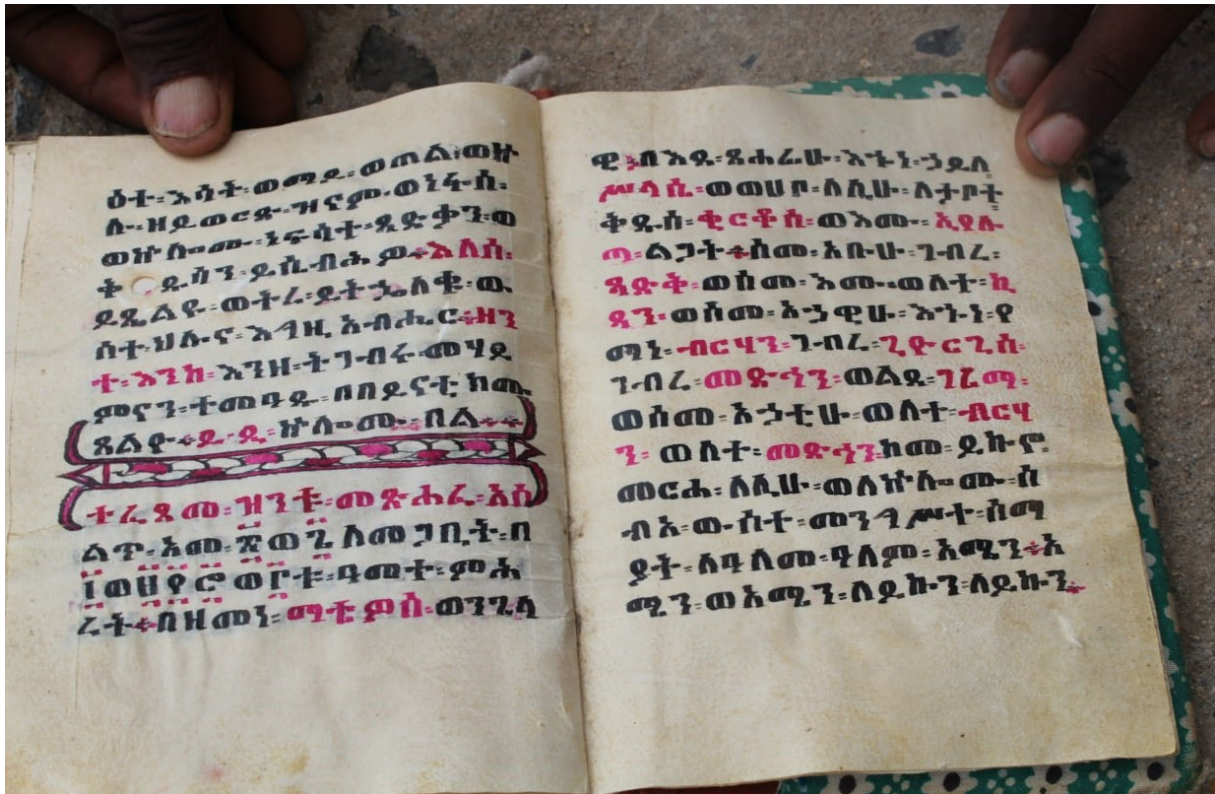 ዕተ፡እሳት፡ወማይ፡ወጠል፡ወኵ
ሉ፡ዘይወርድ፡ዝናም፡ወነፋስ፡
ወኵሎሙ፡ነፍሳተ፡ጻድቃን፡ወ
ቅዱሳን፡ይሴብሕዎ፨እለሰ፡
ይጼልዩ፡ወትረ፡ይትኌለቁ፡ው
ስተ፡ህሉና፡እግዚአብሔር፨ዘን
ተ፡እንከ፡እንዘ፡ትገብሩ፡መሃይ
ምናን፡ተመዓዱ፡በበይናቲክሙ
ጸልዩ፨ይ፡ዲ፡ኵሎሙ፡በል፨
ተፈጸመ፡ዝንቱ፡መጽሐፈ፡አስ
ልጥ፡አመ፡፳ወ፯ለመጋቢት፡በ
፲ወ፱፻፹ወ፫ቱ፡ዓመተ፡ምሕ
ረት፨በዘመነ፡ማቴዎስ፡ወንጌላ
ዊ፨በእዱ፡ጸሐፊሁ፡እኁነ፡ኃይለ
ሥላሴ፡ወወሀቦ፡ለሊሁ፡ለታቦተ
ቅዱስ፡ቂርቆስ፡ወእሙ፡ኢየሉ
ጣ፡ልጋት፨ስመ፡አቡሁ፡ገብረ፡
ጻድቅ፡ወስመ፡እሙ፡ወለተ፡ኪ
ዳን፡ወስመ፡አኃዊሁ፡እኁነ፡የ
ማነ፡ብርሃን፡ገብረ፡ጊዮርጊስ፡
ገብረ፡መድኅን፡ወልደ፡ገሪማ፡
ወስመ፡አኃቲሁ፡ወለተ፡ብርሃ
ን፡ወለተ፡መድኅን፡ከመ፡ይኩኖ፡
መርሐ፡ለሊሁ፡ወለኵሎሙ፡ሰ
ብአ፡ውስተ፡መንግሥተ፡ሰማ
ያት፡ለዓለመ፡ዓለም፡አሜን፨አ
ሜን፡ወአሜን፡ለይኩን፡ለይኩን፨